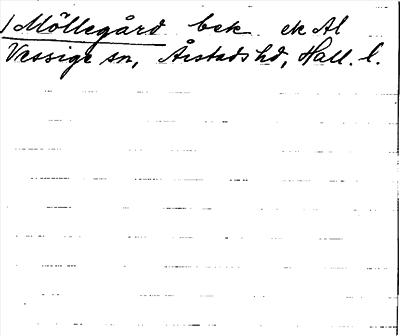 Möllegård bek. ek Al
Vessige sn, Årstads hd, Hall. l.